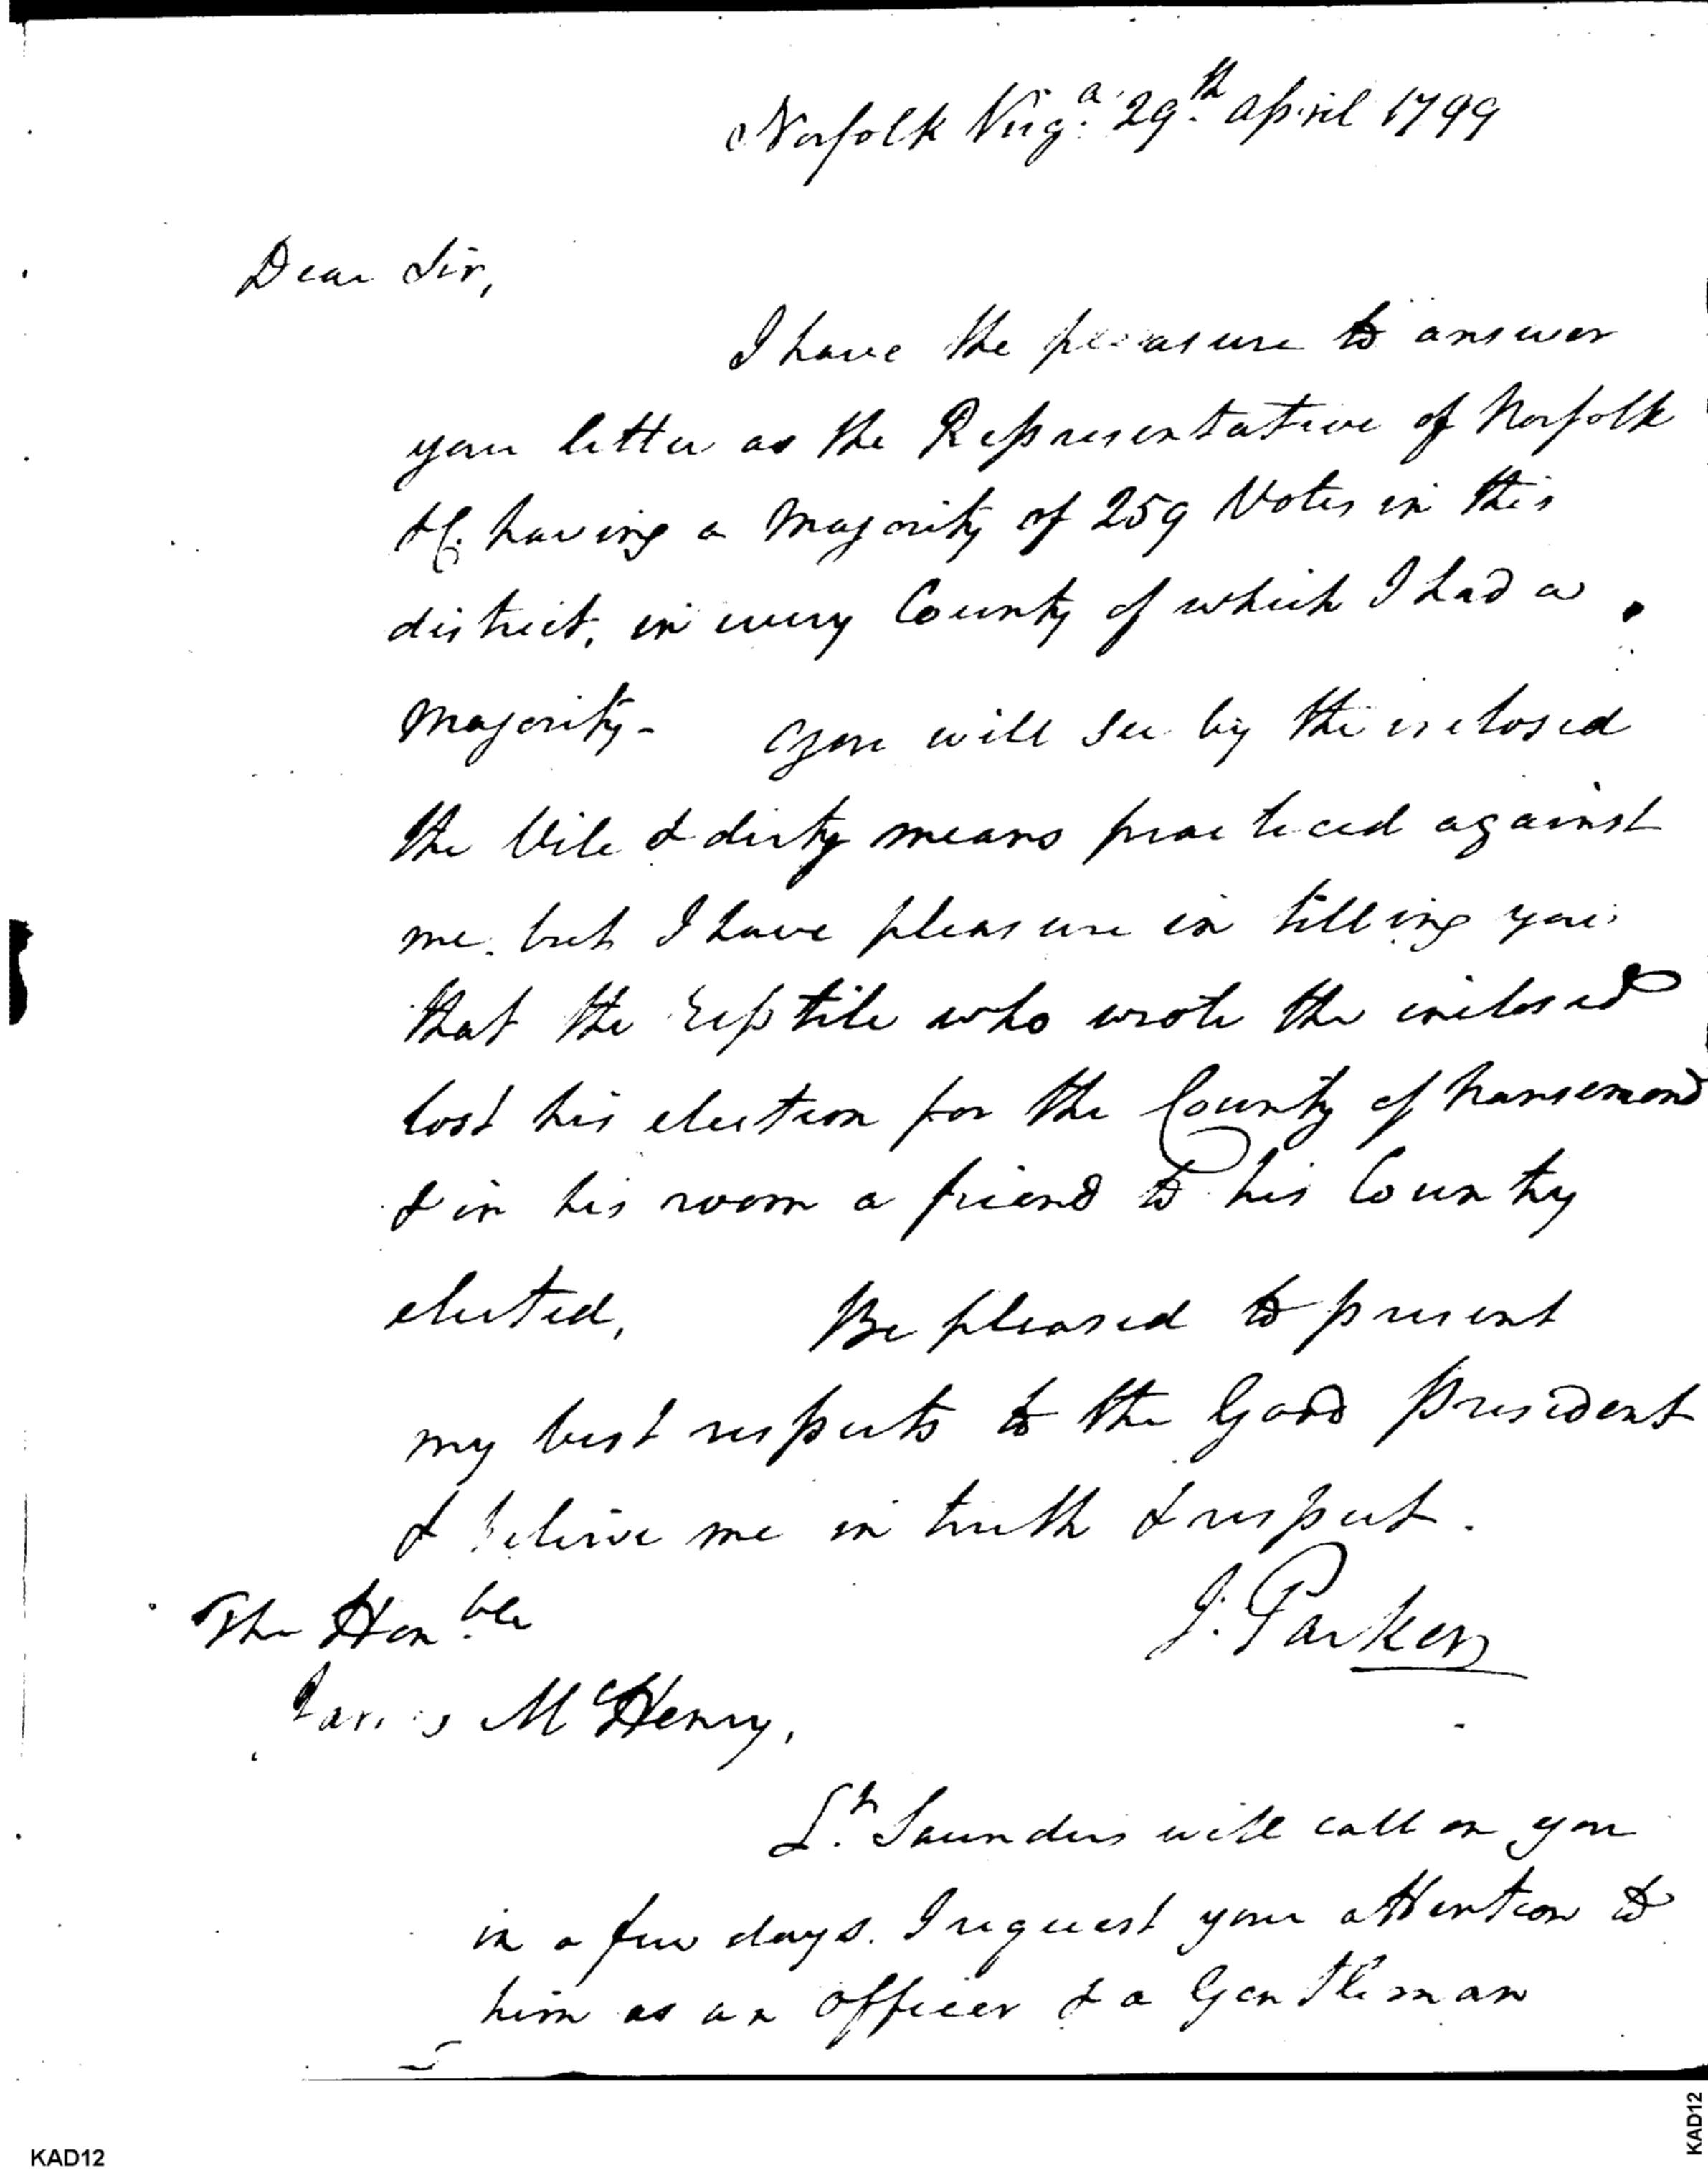 Norfolk Virg.a 29th april 1799
Dear Sir,
I have the pleasure to answer
your letter as the Representative of Norfolk
&C. having a Majority of 259 Votes in this
district, in every County of which I had a
Majority- you will see by the inclosed
the Vile & dirty means practiced against
me. but I have pleasure in telling you
that the reptile who wrote the inclosed
lost his election for the County of Nansemond
& in his room a friend to his Country
elected, Be pleased to present
my best respects to the Good President
& believe me in truth & respect.
J. Parker
The Hon.ble
James McHenry,
Lt. Saunders will call on you
in a few days. I request your attention to
him as an officer & a Gentleman
KAD12
KAD12